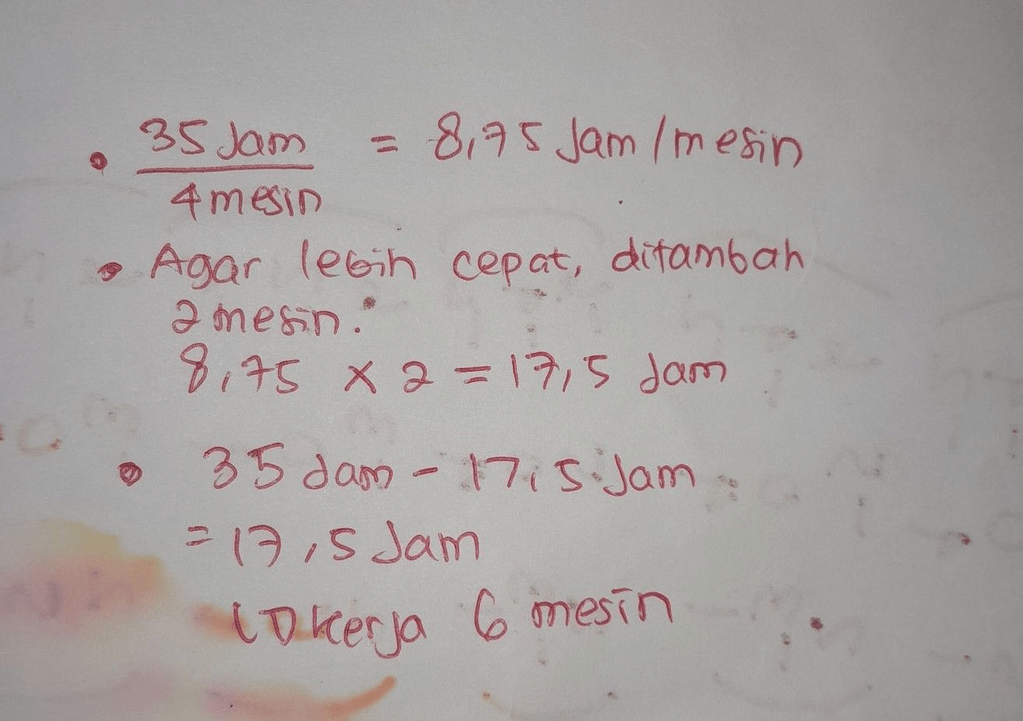 • 35 Jam = 8,75 Jam/mesin
4 mesin
• Agar lebih cepat, ditambah
2 mesin :
8,75 x 2 = 17,5 Jam
• 35 Jam - 17,5 Jam
= 17,5 Jam
kerja 6 mesin